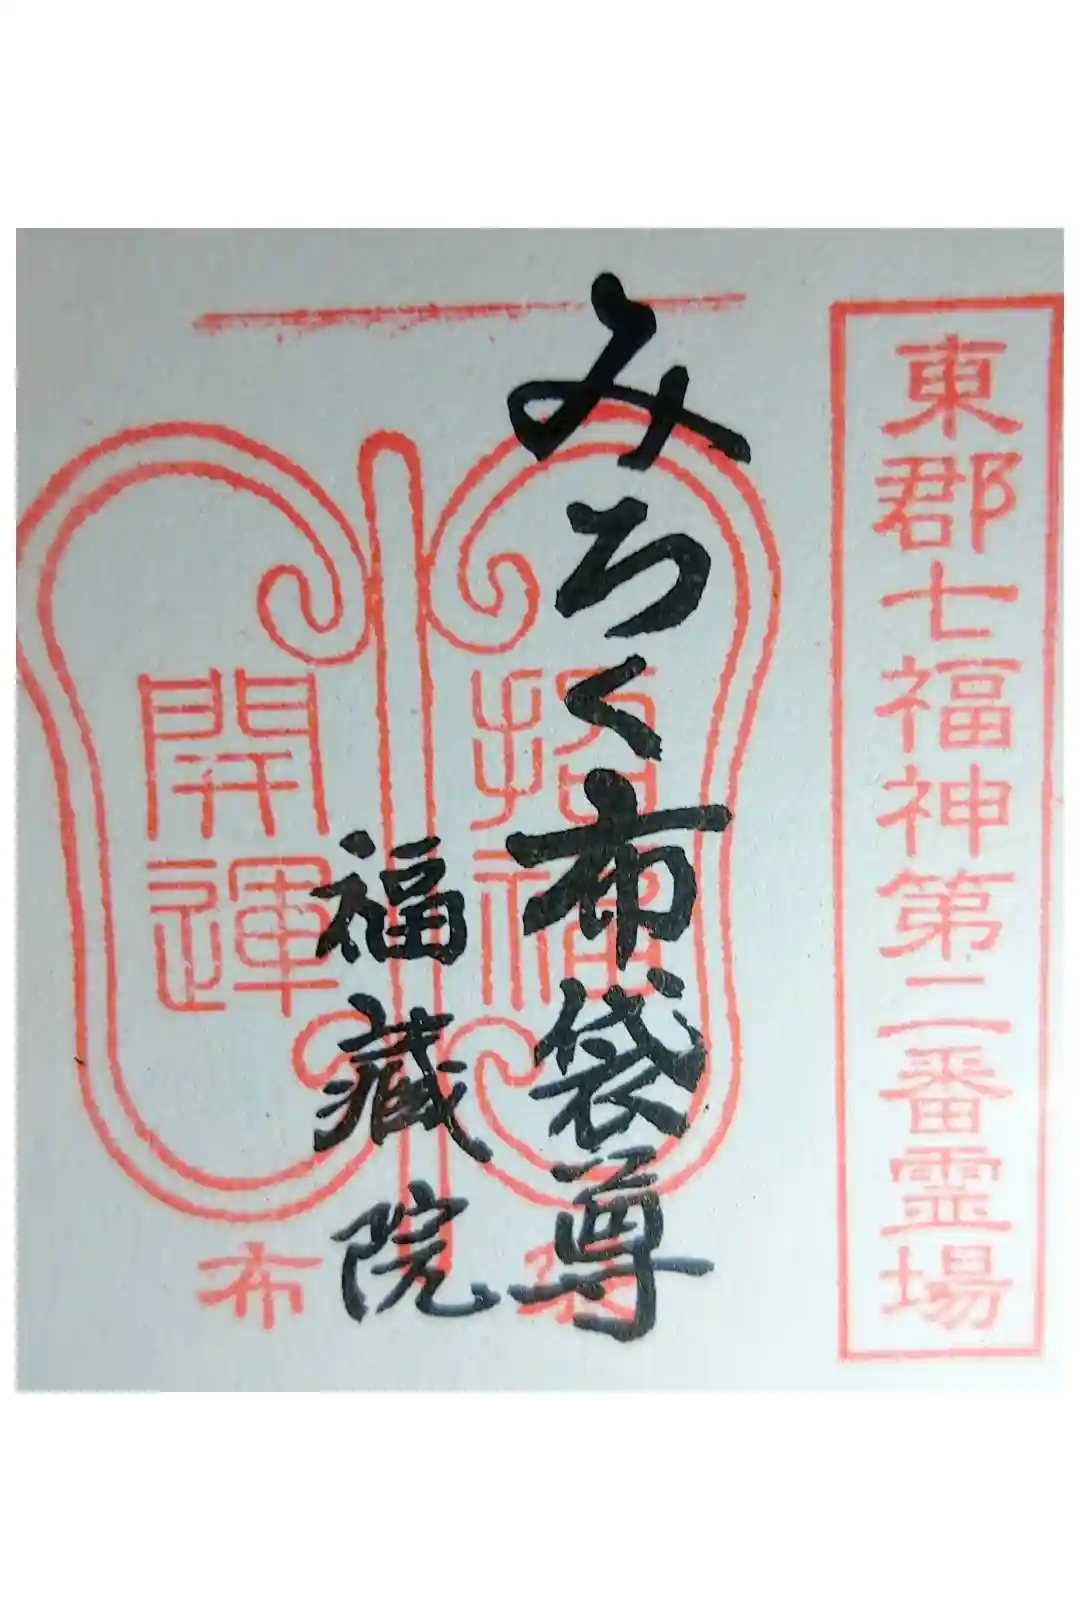 東郡七福神第二番霊場
みろく布袋尊
招福
開運
福蔵院
布袋